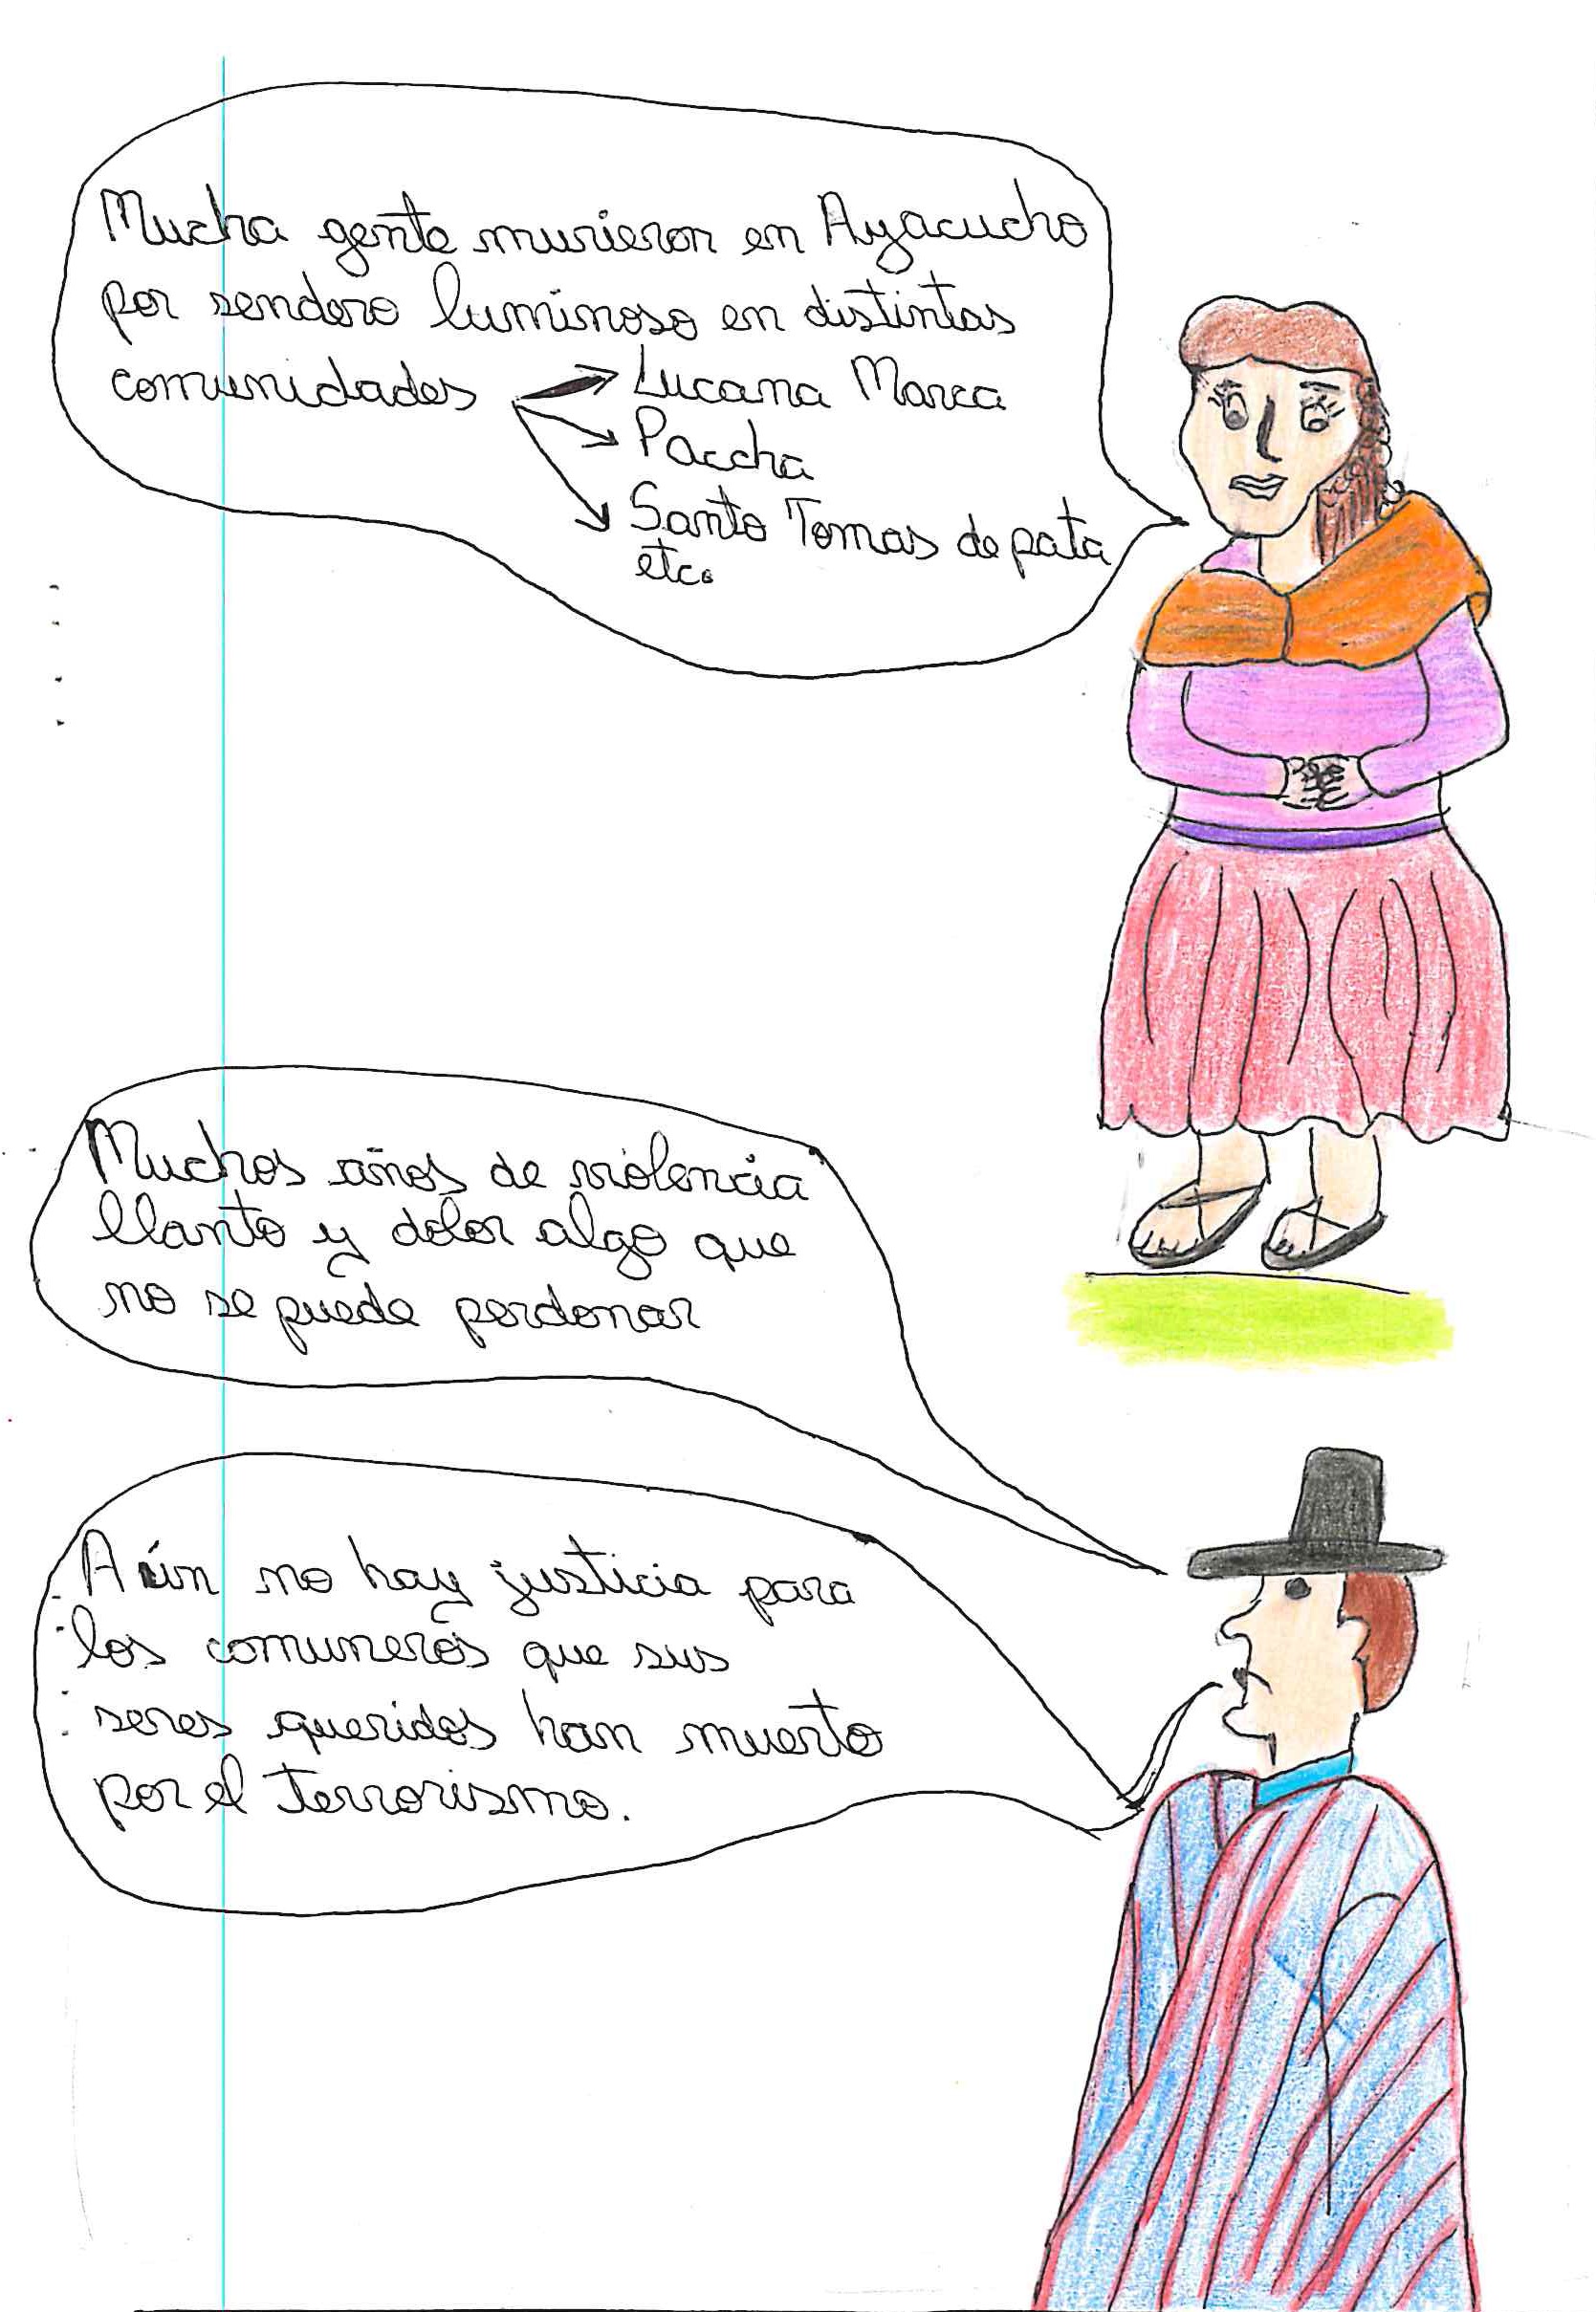 Mucha gente murieron en Ayacucho
por sendero luminoso en distintas
comunidades
Lucana Marca
Paccha
Santo Tomas de pata
etc.
Muchos años de violencia
llanto y dolor algo que
no se puede perdonar
Aún no hay justicia para
los comuneros que sus
seres queridos han muerto
por el Terrorismo.